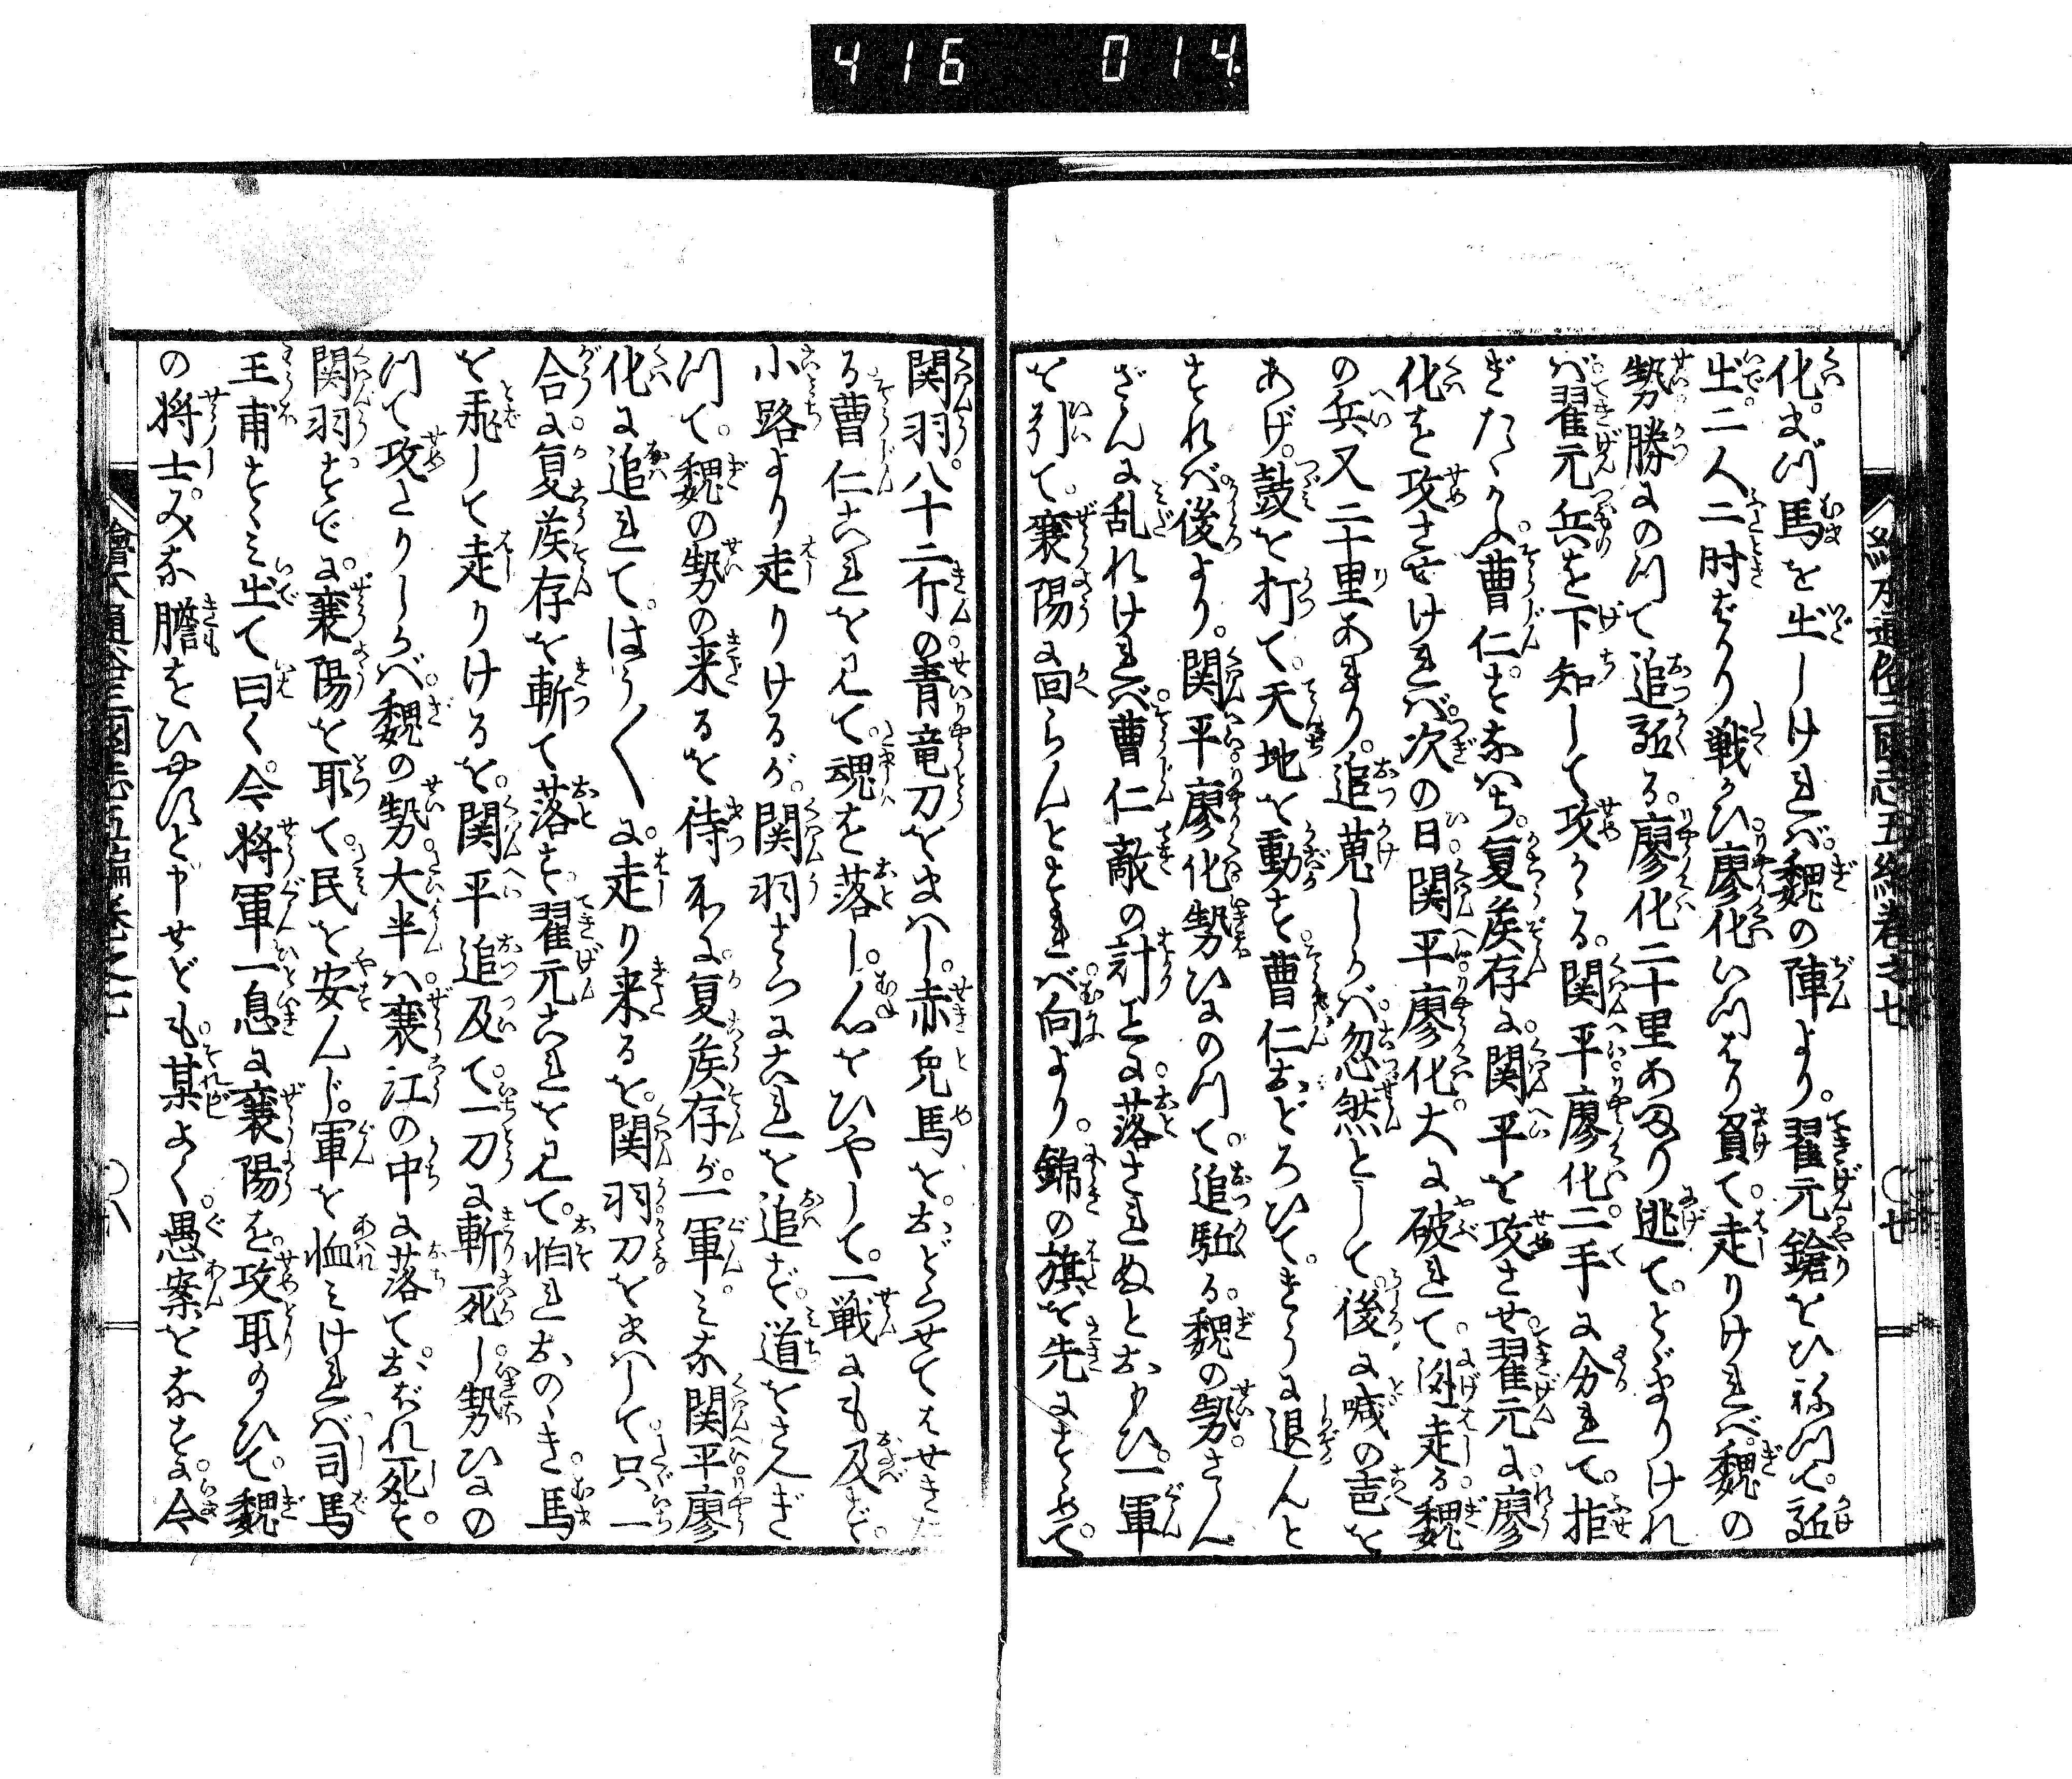 416 014
繪本通俗三國志五編卷之七 〇七
化。まづ馬を出しければ。魏の陣より。翟元鎗をひねつて。詬
出二人二时ばかり戦ひ。廖化いつはり負て。走りければ。魏の
勢勝にのつて追詬る。廖化二十里あまり逃て。とゞまりけれ
バ翟元兵を下知して攻かゝる。関平廖化。二手に分れて。拒
ぎたゝかふ。曹仁。すなハち。夏侯存に関平を攻させ。翟元に廖
化を攻させければ。次の日関平廖化。大に破れて。迯走る。魏
の兵又二十里あまり。追蒐しかば。忽然として後に喊の声を
あげ。鼓を打て。天地を動す。曹仁おどろひて。きうに退んと
すれバ後より。関平廖化勢ひにのつて。追駈る。魏の勢。さん
ざんに乱れければ。曹仁敵の計上に落されぬとおもひ。一軍
を引て。襄陽に回らんとすれば。向より。錦の旗を先にすゝめて。
関羽。八十二斤の青竜刀をまハし。赤兎馬を。おどらせてはせきた
る曹仁これを見て。魂を落し。心をひやして。一戦にも及ず。
小路より走りけるが。関羽さらにこれを追ず。道をさへぎ
つて。魏の勢の来るを待ところに。夏侯存が。一軍。みな関平廖
化に追れて。はう〱に。走り来るを。関羽刀をまハして只一
合に。夏侯存を斬て落す。翟元これを見て。怕れおのゝき。馬
を飛して走りけるを。関平追及て。一刀に斬死し。勢ひにの
つて攻たりしかバ。魏の勢大半ハ。襄江の中に落て。おぼれ死す。
関羽。すでに。襄陽を取て。民を安んじ。軍を恤みければ司馬
王甫すゝみ出て曰く。今将軍一息に襄陽を。攻取給ひて。魏
の将士。みな膽をひやすと申せども。某よく。愚案をなすに。今
繪本通俗三國志五編卷之七 〇八